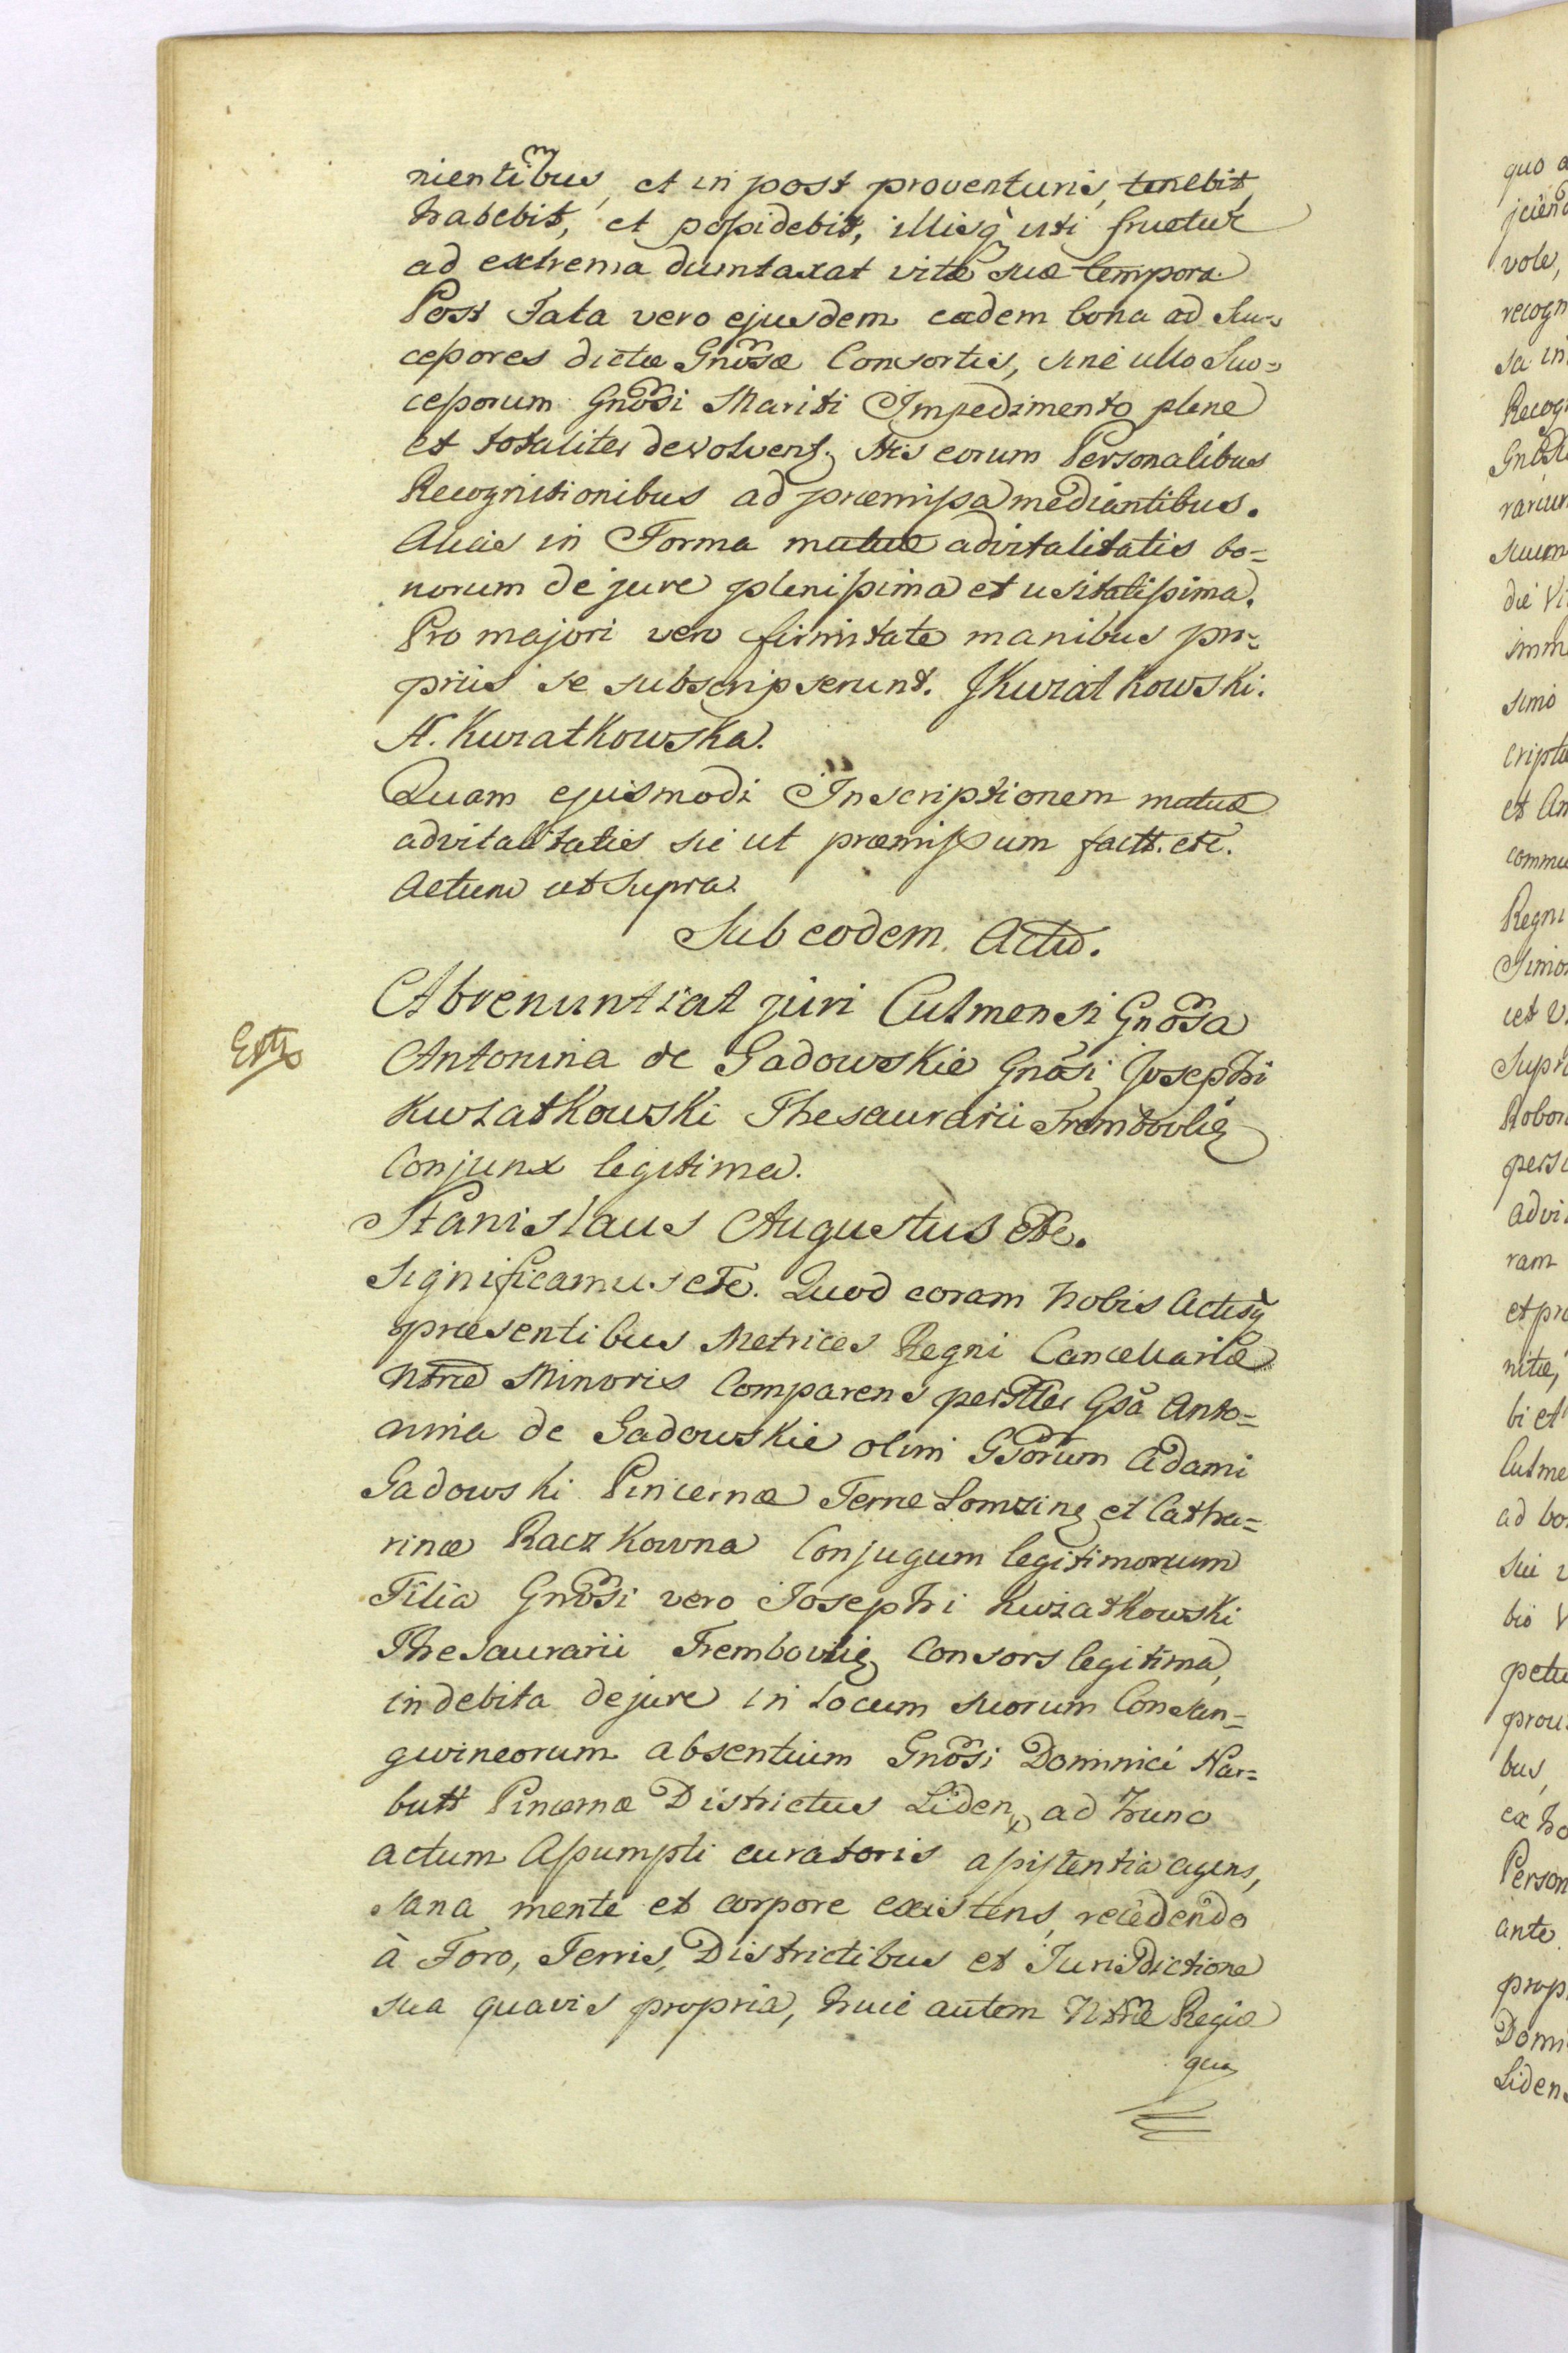 nientibus, et in post proventuris, tenebit,
habebit, et possidebit, illisq̀ uti fruetur
ad extrema dumtaxat vitæ suæ tempora.
Post Fata vero ejusdem eadem bona ad Suc=
cessores dictæ Gnosæ Consortis, sine ullo Suc=
cessorum Gnosi Mariti Impedimento plene
et totaliter devolvent, His eorum Personalibus
Recognitionibus ad præmissa mediantibus.
Aliis in Forma mutuæ advitalitatis bo=
norum de jure plenissima et usitatissima.
Pro majori vero firmitate manibus pro=
priis se subscripserunt. JKwiatkowski.
A. Kwiatkowska.
Quam ejusmodi Inscriptionem mutuæ
advitalitatis sic ut præmissum factt. etc.
Actum ut Supra.
Sub eodem Actu.
Abrenuntiat juri Culmensi Gnosa
Antonina de Gadowskie Gnosi Josephi
Kwiatkowski Thesaurarii Trembovlien
Conjunx legitima.
Stanislaus Augustus etc.
Significamus etc. Quod coram Nobis Actisq̀
præsentibus Metrices Regni Cancellariæ
Ntræ Minoris Comparens persltter Gsa Anto=
nina de Gadowskie olim Gsorum Adami
Gadowski Pincernæ Terræ Lomzin, et Catha=
rinæ Raczkowna Conjugum legitimorum
Filia Gnosi vero Josephi Kwiatkowski
Thesaurarii Trembovlien Consors legitima,
in debita de jure in Locum suorum Consan=
gwineorum absentium Gnosi Dominici Nar=
butt Pincernæ Districtus Liden, ad hunc
actum Assumpti curatoris assistentia agens,
sana mente et corpore existens, recedendo
à Foro, Terris, Districtibus et Jurisdictione
sua quavis propria, huic autem Ntræ Regiæ
quo
jcien
vole,
recogn
sa in
Recog
Gnos
rariur
suum
die Vi
imm
simo
cripta
et An
commu
Regni
Simo
ut
Supr
Robor
pers
advi
ram
et pr
nitæ,
bi et
Culme
ad bo
sui
bio V
petu
prou
bus,
ex ho
Person
ante
prop
Domi
Liden